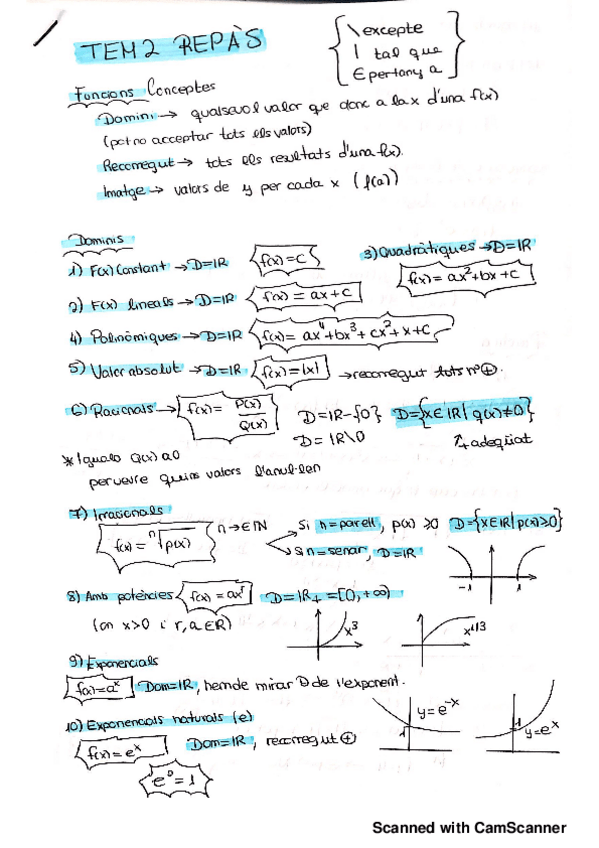 TEM 2 REPÀS
\ excepte
| tal que
∈ pertany a
Funcions Conceptes
Domini → qualsevol valor que donc a la x d'una f(x)
(pot no acceptar tots els valors)
Recorregut → tots els resultats d'una f(x).
Imatge → valors de y per cada x (f(a))
Dominis
1) F(x) Constant → D=IR f(x)=C
3) Quadràtiques → D=IR
f(x)=ax²+bx+c
2) F(x) lineals → D=IR f(x)=ax+c
4) Polinòmiques → D=IR f(x)=ax⁴+bx³+cx²+x+c
5) Valor absolut → D=IR f(x)=|x| → recorregut tots nº ⊕.
6) Racionals → f(x)= P(x)/Q(x) D=IR-{0} D={x∈IR| q(x)≠0}
D=IR\0 ↳ adeqüat
* Igualo Q(x) a 0
per veure quins valors l'anul·len
7) Irracionals
f(x)=ⁿ√p(x) n→∈IN Si n=parell, p(x) ≥0 D={x∈IR|p(x)≥0}
Si n=senar, D=IR
-1 1
8) Amb potències f(x)=axʳ D=IR+=[0,+∞)
(on x>0 i r,a∈R)
x³ x^1/3
9) Exponencials
f(x)=aˣ Dom=IR, hem de mirar D de l'exponent.
10) Exponencials naturals (e)
f(x)=eˣ Dom=IR, recorregut ⊕
e⁰=1
y=e⁻ˣ
1
y=eˣ
1
Scanned with CamScanner